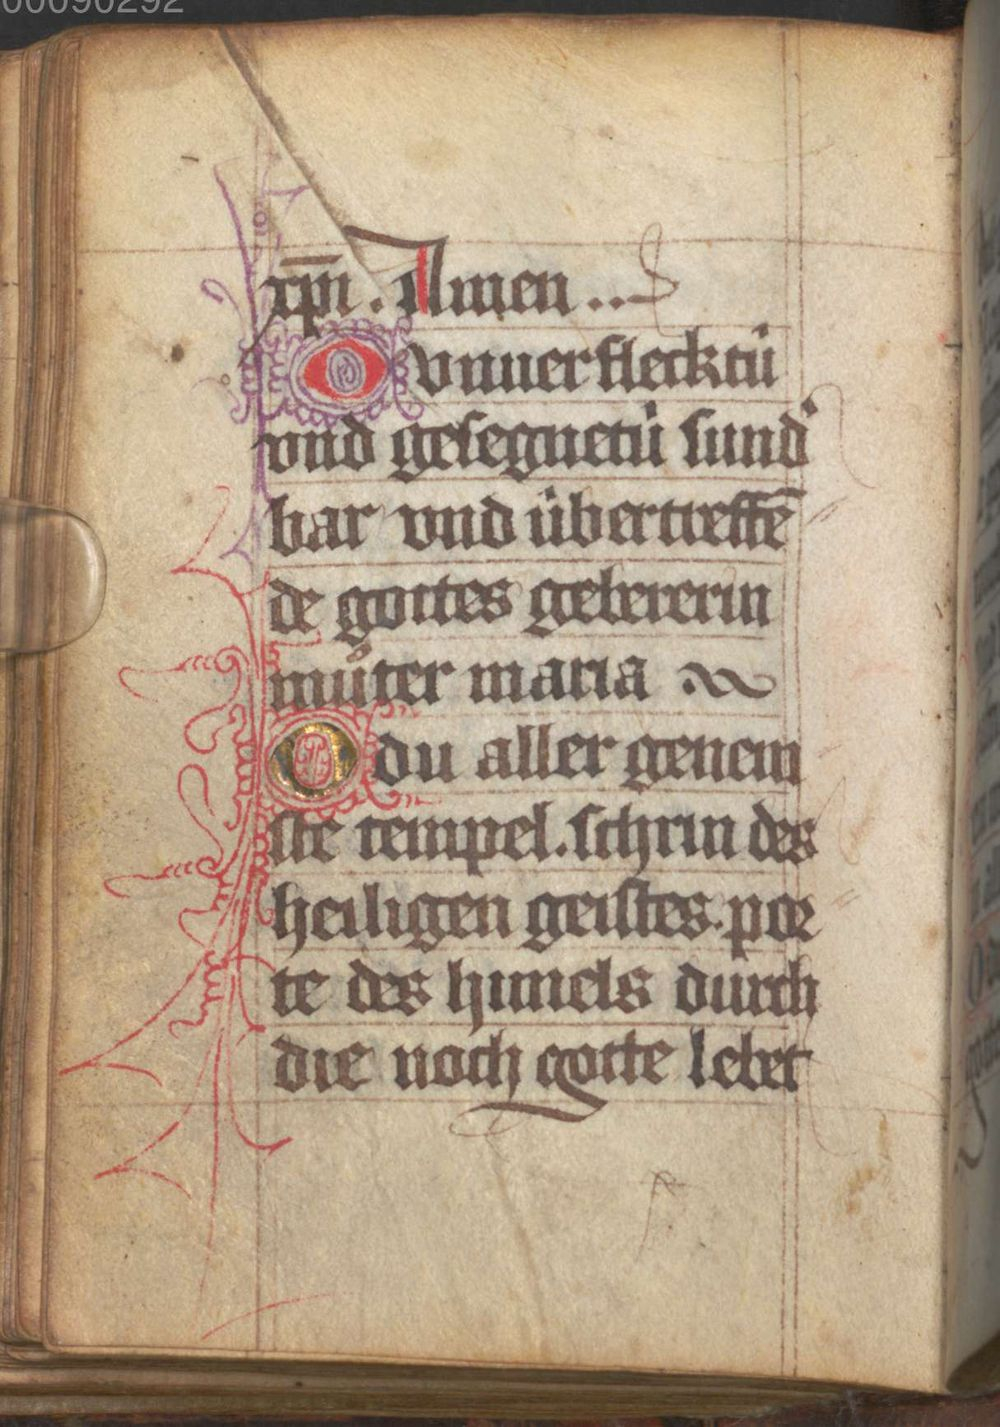 00090292
xp̄i . Amen ..
O vnuerflecktü
vnd gesegnetü sund'
bar vnd übertreffē
de gottes gebererin
muͦter maria
O du aller genem
ste tempel . schrin des
heiligen geistes . por
te des himels durch
die noch gotte lebet